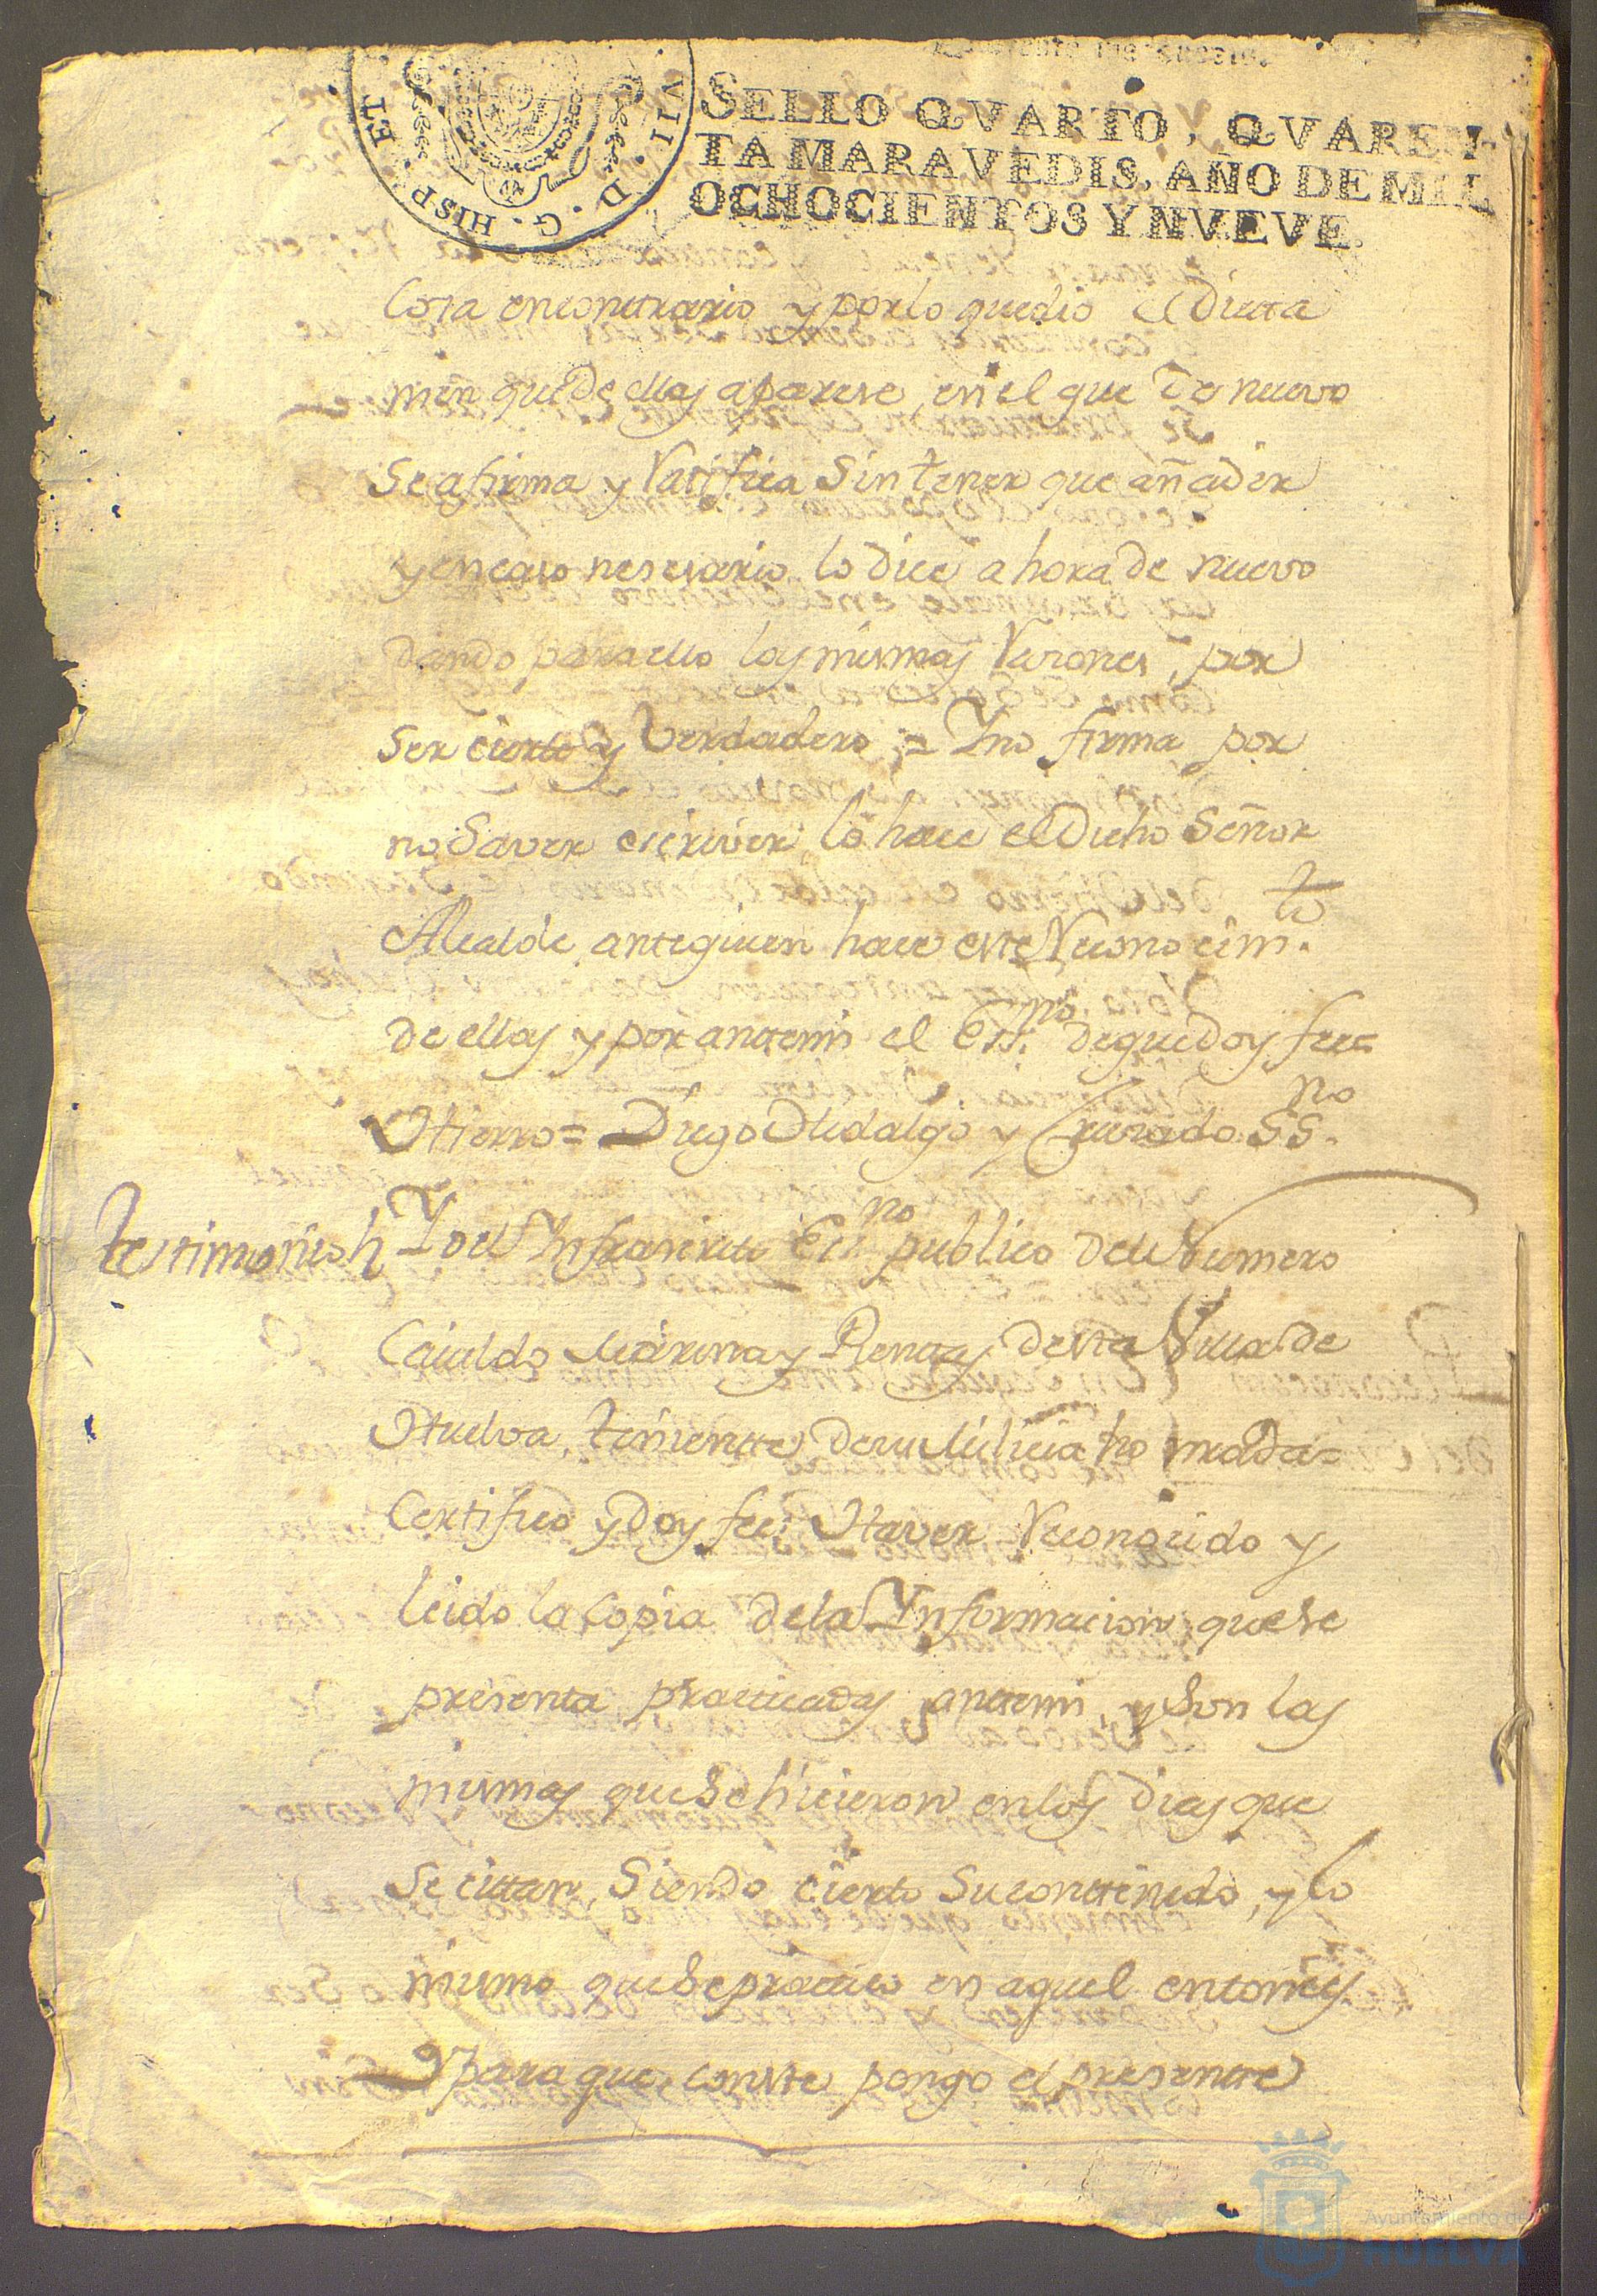 Quarenta maravedis.
VII . D . G . HISP . ET
SELLO QVARTO, QVAREN-
TA MARAVEDIS, AÑO DE MIL
OCHOCIENTOS Y NVEVE.
Cosa encontrario y porlo quedio el Dicta
men que de ellas aparese, en el que de nuevo
Se afirma y Ratifica Sin tener que añadir
y encaso nesesario lo dice ahora de nuevo
dando para ello las mismas Rasones, por
Ser cierto y Verdadero = Yno firma por
no Saver escrivir, lo hace el Dicho Señor
Alcalde, antequien hace este Reconocim.to
de ellas y por antemi el Ess.no dequedoy fee=
Hierro = Diego Hidalgo y Jurado SS.no
Testimonio
Yo el Infrascrito Ess.no publico del Numero
Cavildo Marina y Rentas desta Villa de
Huelva, teniente desu Milicia honrrada=
Certifico y Doy fee: Haver Reconocido y
leido la Copia dela Informacion, quese
presenta practicadas antemi, y Son las
mismas queSehicieron enlos Dias que
Se cittan, Siendo cierto Sucontenido, y lo
mismo queSepractico en aquel entonces
Y para que conste pongo el presente
Ayuntamiento de
HUELVA